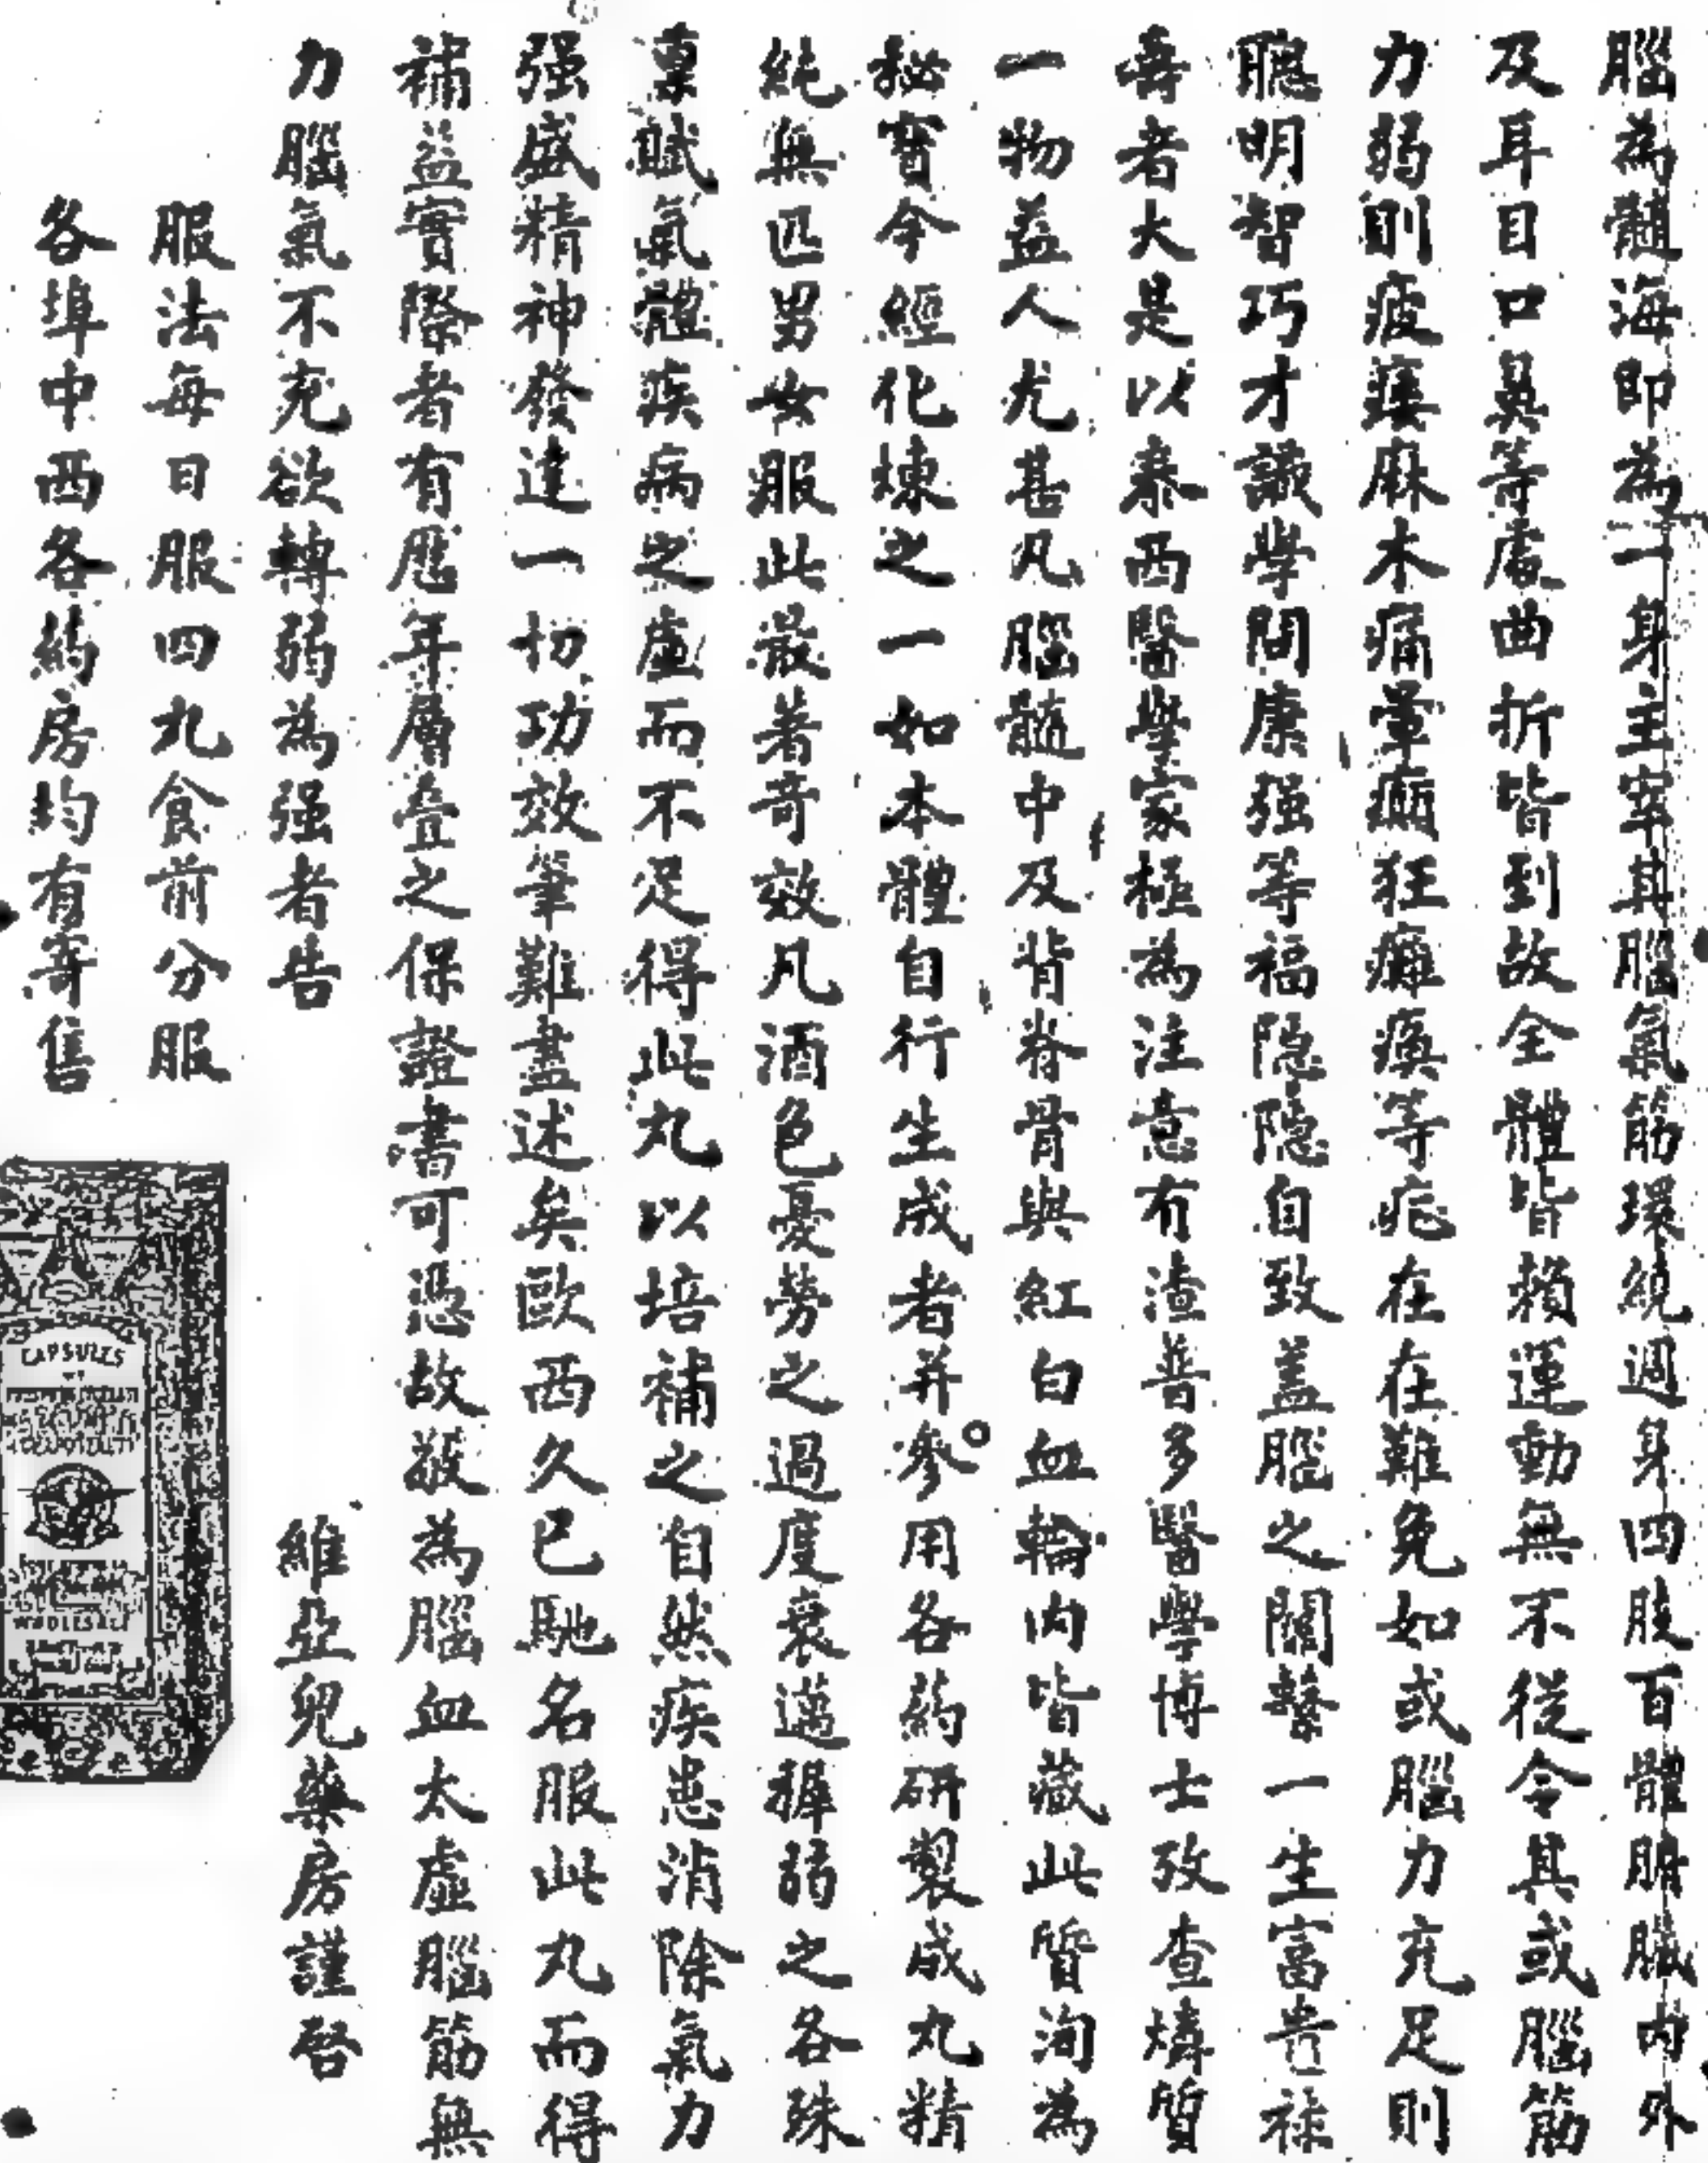 腦為髓海即為一身主宰其腦氣筋環繞週身四肢百體腑臟內外
及耳目口鼻等處曲折皆到故全體皆賴運動無不從令其或腦筋
力弱則疲痿麻木痛暈癎狂癱瘓等症在在難免如或腦力充足則
聰明智巧才識學問康强等福隱隱自致蓋腦之關繫一生富貴祿
壽者大是以泰西醫學家極為注意有渣普多醫學博士攷查燐質
一物益人尤甚凡腦髓中及背脊骨與紅白血輪內皆藏此質洵為
秘寶今經化煉之一如本體自行生成者并參用各药研製成丸精
純無匹男女服此最著奇效凡酒色憂勞之過度衰邁孱弱之各殊
稟賦氣體疾病之虛而不足得此丸以培補之自然疾患消除氣力
强盛精神發達一切功效筆難盡述矣歐西久已馳名服此丸而得
補益實際者有歷年層叠之保證書可憑故敬為腦血太虛腦筋無
力腦氣不充欲轉弱為强者告
維亞兒藥房謹啓
服法每日服四丸食前分服
各埠中西各药房均有寄售
CAPSULES
WHOLESALE